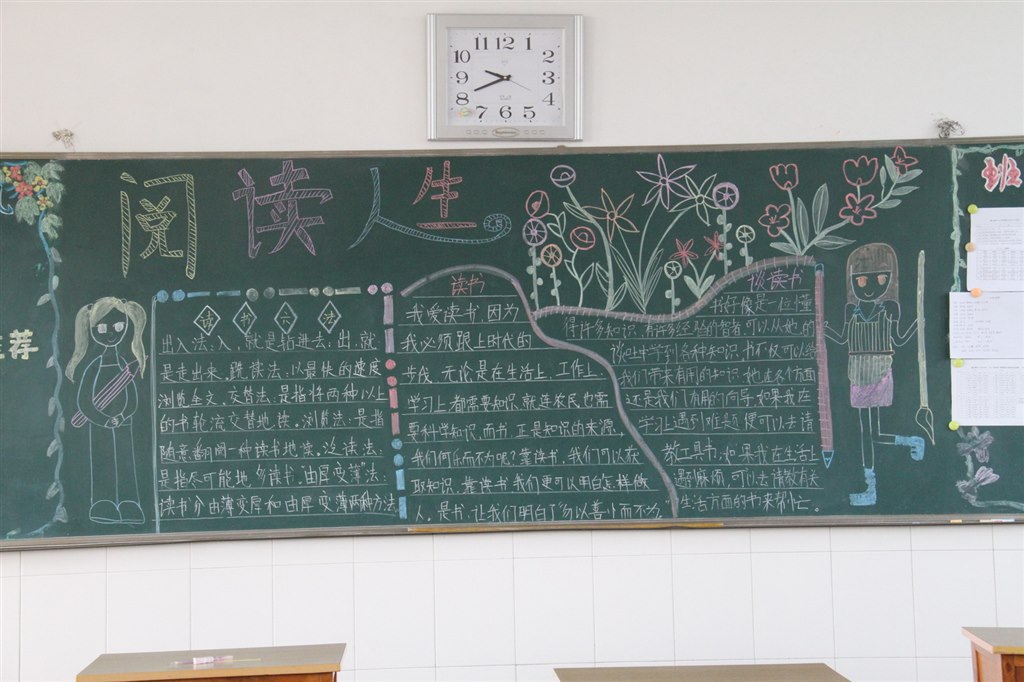 11 12 1
10 2
9 3
8 4
7 6 5
阅读人生
班
荐
读书六法
出入法:入,就是钻进去;出,就
是走出来。跳读法:以最快的速度
浏览全文。交替法:是指将两种以上
的书轮流交替地读。浏览法:是指
随意翻阅一种读书地读。泛读法:
是指尽可能地多读书。由厚变薄"法:
读书分由薄变厚和由厚变薄两种方法
读书
我爱读书,因为
我必须跟上时代的
步伐,无论是在生活上、工作上、
学习上都需要知识,就连农民也需
要种学知识,而书正是知识的来源,
我们何乐而不为呢?靠读书,我们可以获
取知识,靠读书我们更可以明白怎样做
人。是书,让我们明白了"勿以善小而不为,
谈读书
书好像是一位懂
得许多知识,有许多经验的智者,可以从她的
谈吐中学到各种知识。书不仅可以给
我们带来有用的知识,她在各个方面
还是我们有用的向导。如果我在
学习上遇到难题便可以去请
教工具书;如果我在生活上
遇到麻烦,可以去请教有关
生活方面的书来帮忙。